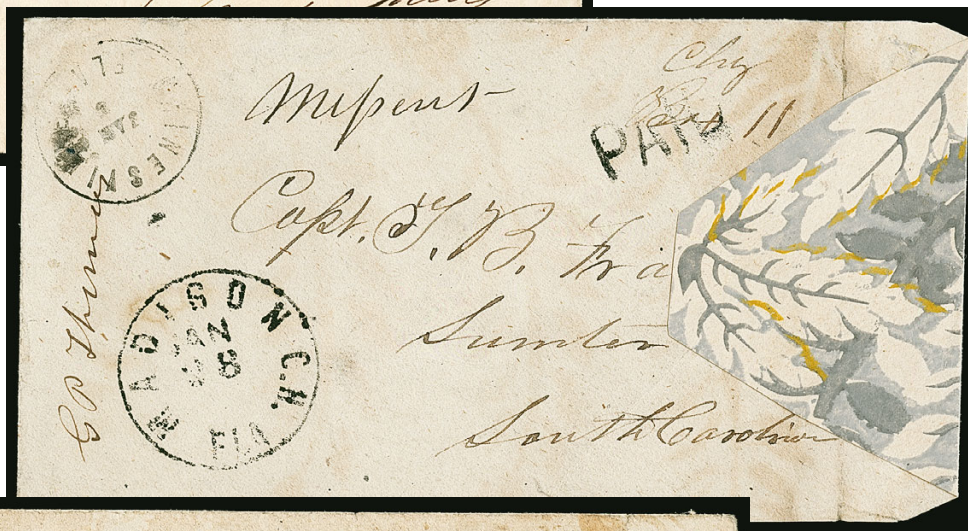 GAINESVILLE
JAN
Missent
Chg
Box 11
PAID
Capt. T. B. Fra
Sumter
South Carolina
MADISON C.H.
JAN
28
FLA